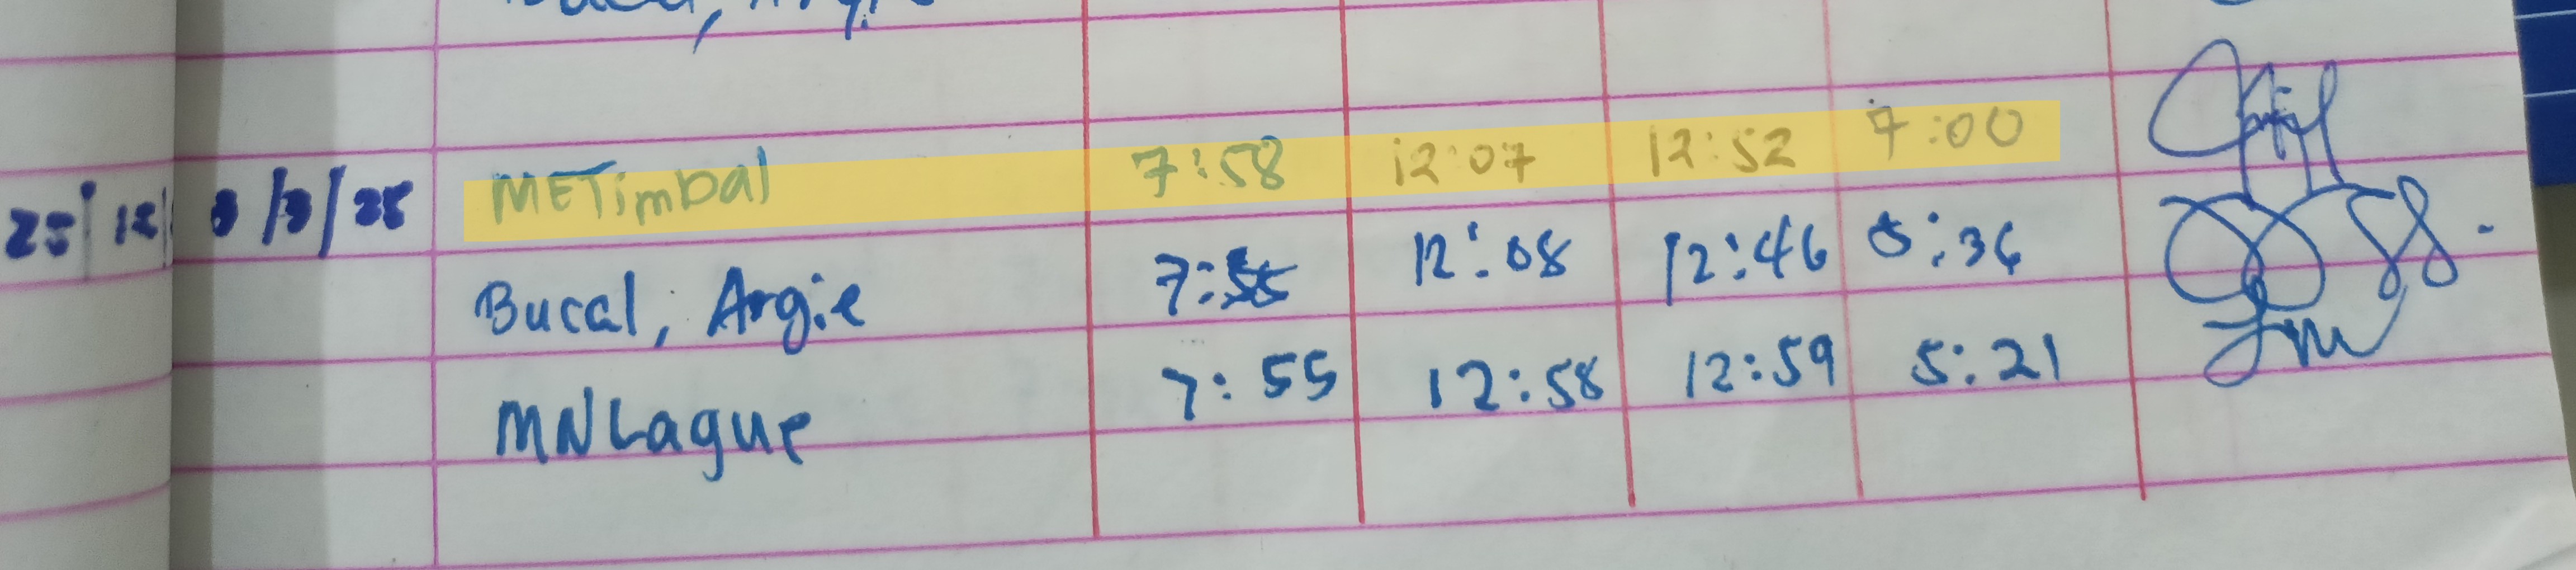 METimbal 7:58 12:07 12:52 7:00
Bucal, Argie 12:08 12:46 5:36
MNLague 7:55 12:58 12:59 5:21